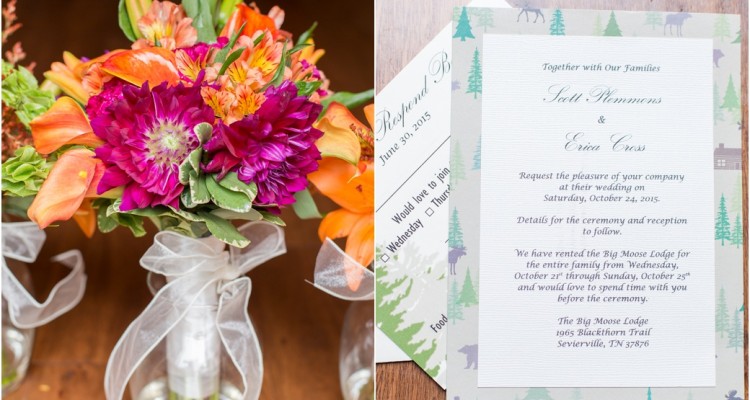 Respond B
June 30, 2015
Would love to join
Wednesday
Thurs
Food
Together with Our Families
Scott Plemmons
&
Erica Cross
Request the pleasure of your company
at their wedding on
Saturday, October 24, 2015.
Details for the ceremony and reception
to follow.
We have rented the Big Moose Lodge for
the entire family from Wednesday,
October 21st through Sunday, October 25th
and would love to spend time with you
before the ceremony.
The Big Moose Lodge
1965 Blackthorn Trail
Sevierville, TN 37876